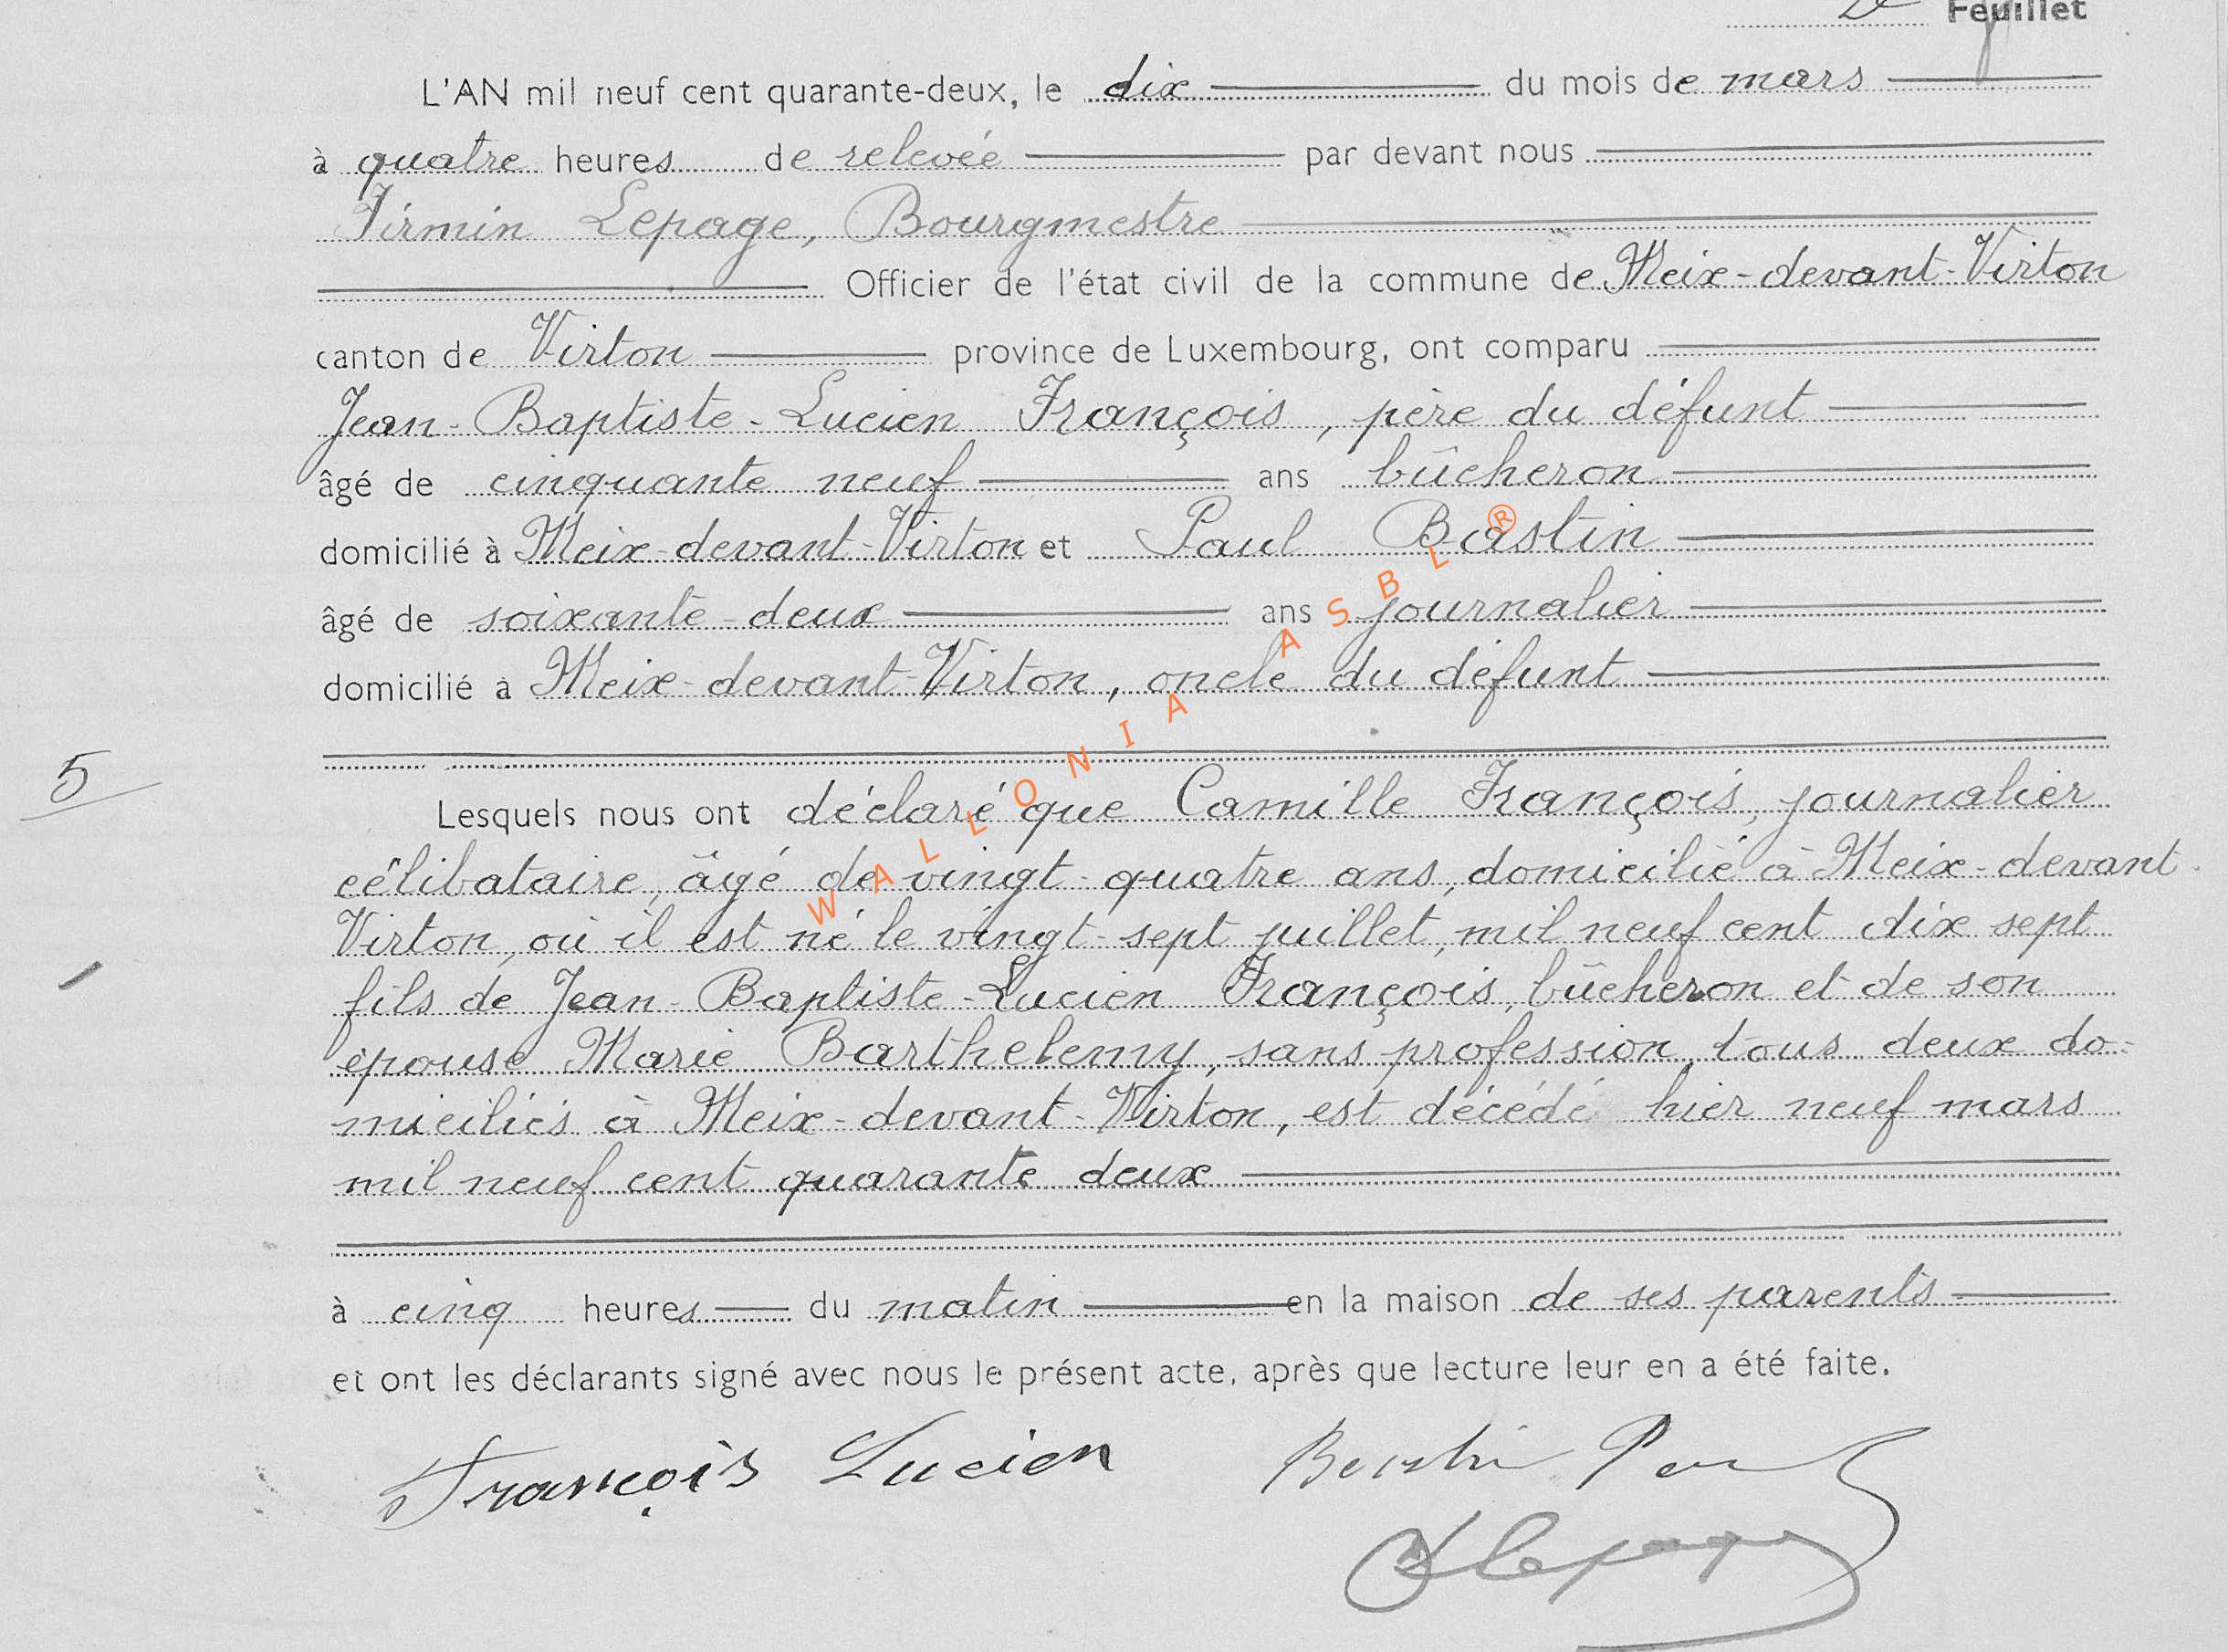 Feuillet
L'AN mil neuf cent quarante-deux, le dix du mois de mars
à quatre heures de relevée par devant nous
Firmin Lepage, Bourgmestre
Officier de l'état civil de la commune de Meix-devant-Virton
canton de Virton province de Luxembourg, ont comparu
Jean-Baptiste-Lucien François, père du défunt
âgé de cinquante neuf ans bûcheron
domicilié à Meix-devant-Virton et Paul Bastin
âgé de soixante-deux ans journalier
domicilié à Meix-devant-Virton, oncle du défunt
5
Lesquels nous ont déclaré que Camille François, journalier
célibataire, âgé de vingt-quatre ans, domicilié à Meix-devant-
Virton, où il est né le vingt-sept juillet, mil neuf cent dix sept
fils de Jean-Baptiste-Lucien François, bûcheron et de son
épouse Marie Barthelemy, sans profession, tous deux do-
miciliés à Meix-devant-Virton, est décédé hier neuf mars
mil neuf cent quarante deux
à cinq heures du matin en la maison de ses parents
et ont les déclarants signé avec nous le présent acte, après que lecture leur en a été faite.
François Lucien Bastin Paul
Lepage
WALLONIA ASBL ®